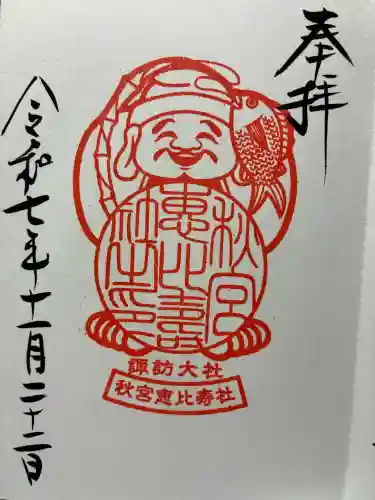 奉拝
秋宮
恵比壽
社之印
諏訪大社
秋宮恵比寿社
令和七年十一月二十二日